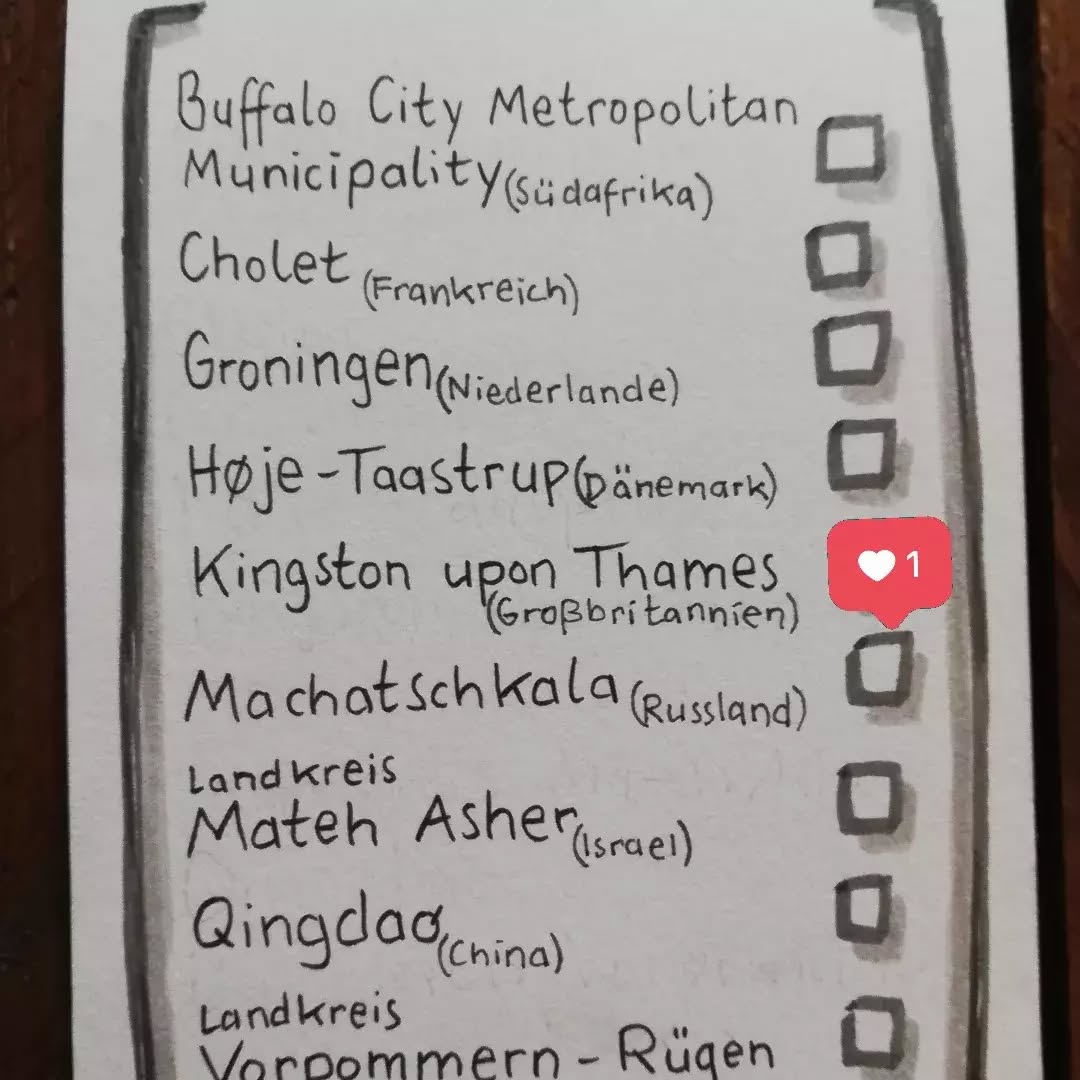 Buffalo City Metropolitan
Municipality (Südafrika)
Cholet (Frankreich)
Groningen (Niederlande)
Høje-Taastrup (Dänemark)
Kingston upon Thames
(Großbritannien)
1
Machatschkala (Russland)
Landkreis
Mateh Asher (Israel)
Qingdao (China)
Landkreis
Vorpommern-Rügen